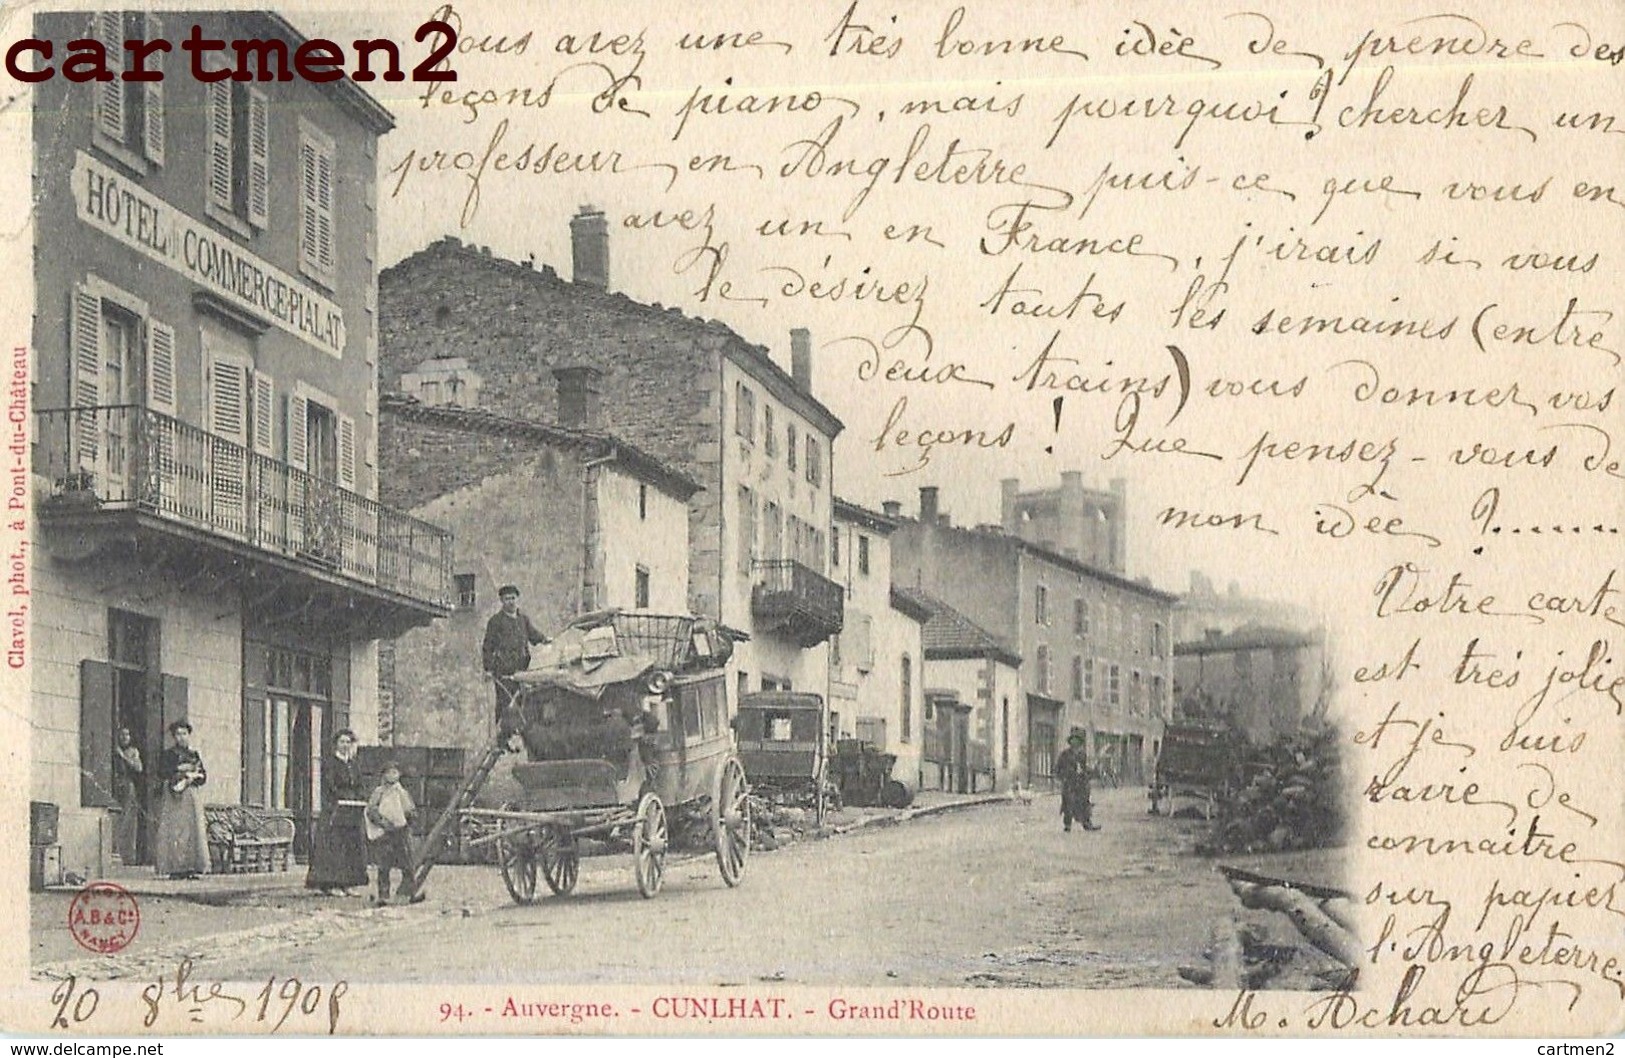 cartmen2
Vous avez une très bonne idée de prendre des
leçons de piano, mais pourquoi? chercher un
professeur en Angleterre puis-ce que vous en
avez un en France, j'irais si vous
le désirez toutes les semaines (entre
deux trains) vous donner vos
leçons! Que pensez-vous de
mon idée ?.......
Votre carte
est très jolie
et je suis
ravie de
connaitre
sur papier
l'Angleterre.
M. Achard
HÔTEL DU COMMERCE-PIALAT
Clavel, phot., à Pont-du-Château
PHOT.
A.B & Cie
NANCY
20 8bre 1905
94. - Auvergne. - CUNLHAT. - Grand'Route
cartmen2 on www.delcampe.net
cartmen2